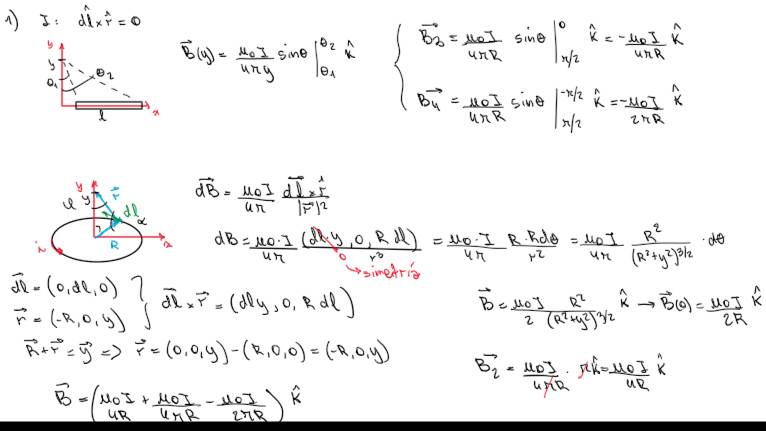 1) I: d̂l × r̂ = 0
y
y
θ₁
θ₂
x
l
B⃗(y) = μ₀I/4πy sinθ |_{θ₁}^{θ₂} k̂
B⃗₃ = μ₀I/4πR sinθ |_{π/2}^{0} k̂ = -μ₀I/4πR k̂
B⃗₄ = μ₀I/4πR sinθ |_{π/2}^{-π/2} k̂ = -μ₀I/2πR k̂
y
y
r⃗
dl
α
R
i
x
dB⃗ = μ₀I/4π dl⃗ × r̂/|r⃗|²
dB = μ₀·I/4π (dl y, 0, R dl)/r³ = μ₀·I/4π R·Rdθ/r² = μ₀I/4π R²/(R²+y²)^{3/2} · dθ
0
simetría
dl⃗ = (0, dl, 0)
r⃗ = (-R, 0, y)
dl⃗ × r⃗ = (dl y, 0, R dl)
R⃗ + r⃗ = y⃗ => r⃗ = (0,0,y) - (R,0,0) = (-R,0,y)
B⃗ = μ₀I/2 R²/(R²+y²)^{3/2} k̂ → B⃗(0) = μ₀I/2R k̂
B⃗₂ = μ₀I/4πR · πk̂ = μ₀I/4R k̂
B⃗ = (μ₀I/4R + μ₀I/4πR - μ₀I/2πR) k̂